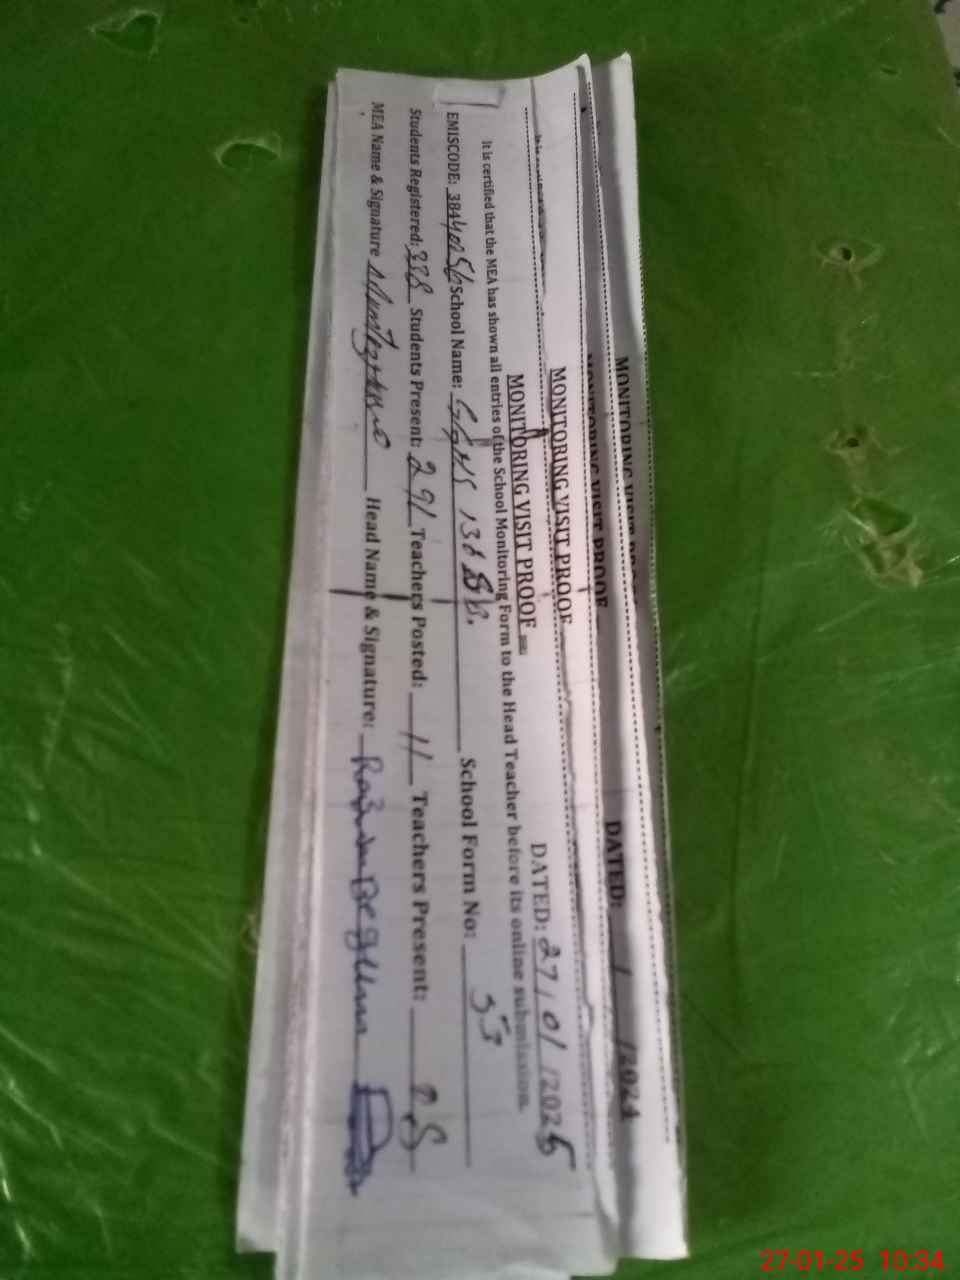 MONITORING VISIT
DATED: / /2024
MONITORING VISIT PROOF
MONITORING VISIT PROOF
MONITORING VISIT PROOF
DATED: 27/01/2025
It is certified that the MEA has shown all entries of the School Monitoring Form to the Head Teacher before its online submission.
EMISCODE: School Name: GGHS 136 School Form No: 53
Students Registered: 338 Students Present: 291 Teachers Posted: 11 Teachers Present: 08
MEA Name & Signature Head Name & Signature: Begum
27-01-25 10:34